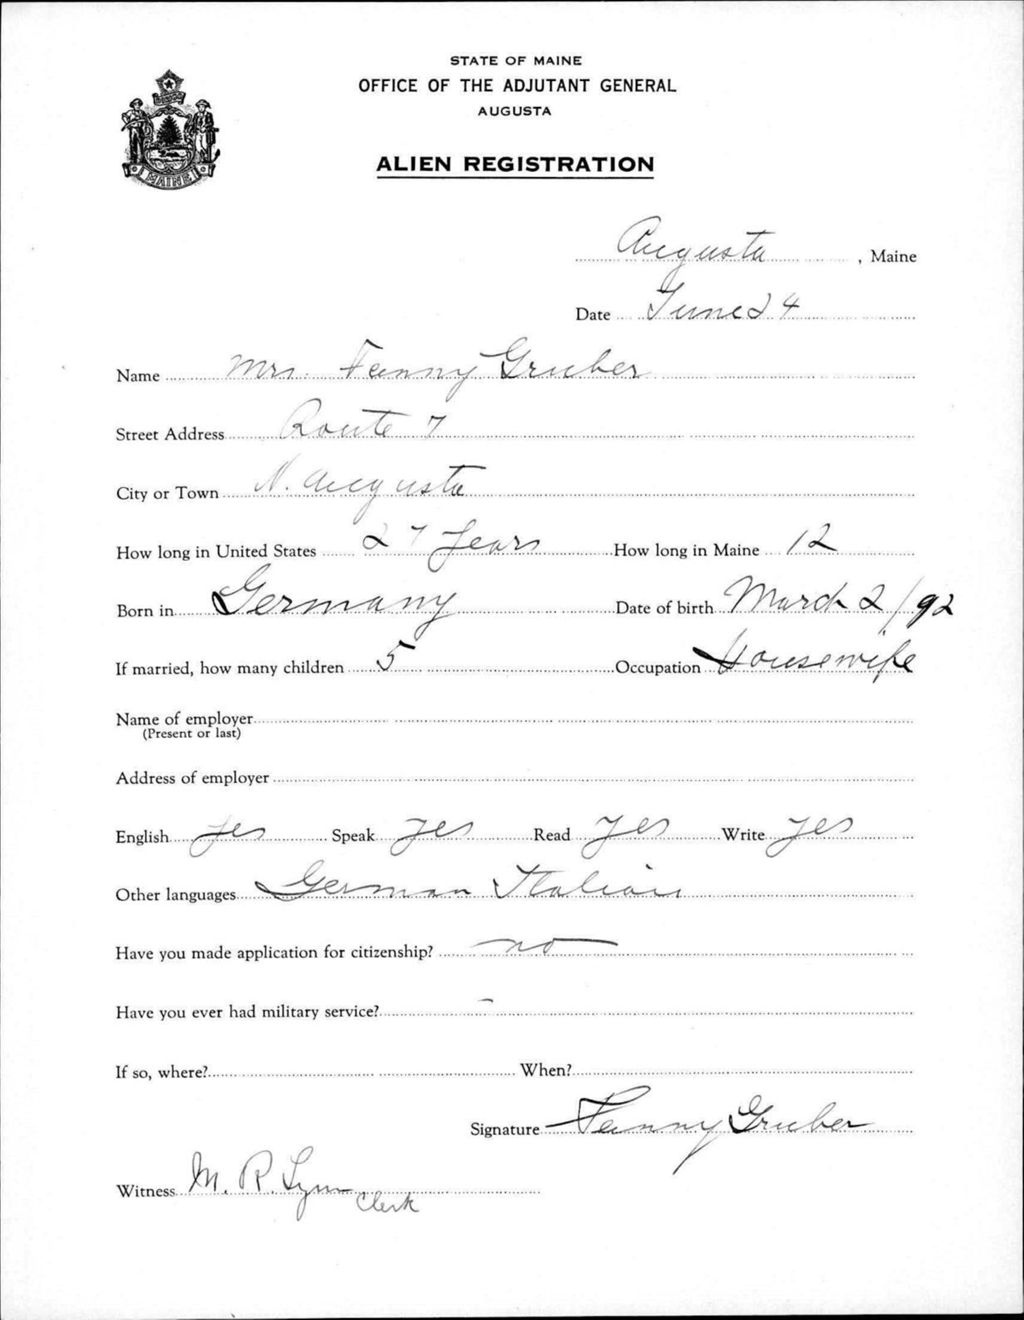 STATE OF MAINE
OFFICE OF THE ADJUTANT GENERAL
AUGUSTA
ALIEN REGISTRATION
MAINE
Augusta, Maine
Date June 24
Name Mrs. Fanny Gruber
Street Address Route 7
City or Town N. Augusta
How long in United States 27 years How long in Maine 12
Born in Germany Date of birth March 2/92
If married, how many children 5 Occupation Housewife
Name of employer
(Present or last)
Address of employer
English yes Speak yes Read yes Write yes
Other languages German Italian
Have you made application for citizenship? no
Have you ever had military service? -
If so, where? When?
Signature Fanny Gruber
Witness M. R. Clerk